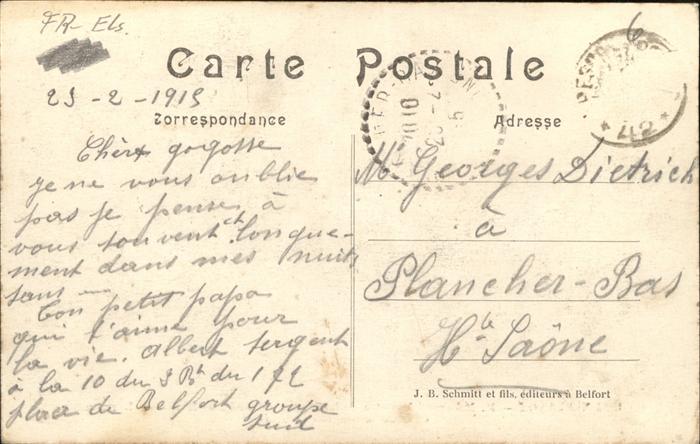 FR- Els.
Carte Postale
23-2-1915
Correspondance
Adresse
Chère gogosse
je ne vous oublie
pas je pense à
vous souvent et longue-
ment dans mes nuits
sans
Ton petit papa
qui t'aime pour
la vie. Albert sergent
à la 10 du 3 Bt du 172
place de Belfort groupe
sud
Mr Georges Dietrich
à
Plancher-Bas
Hte Saône
J. B. Schmitt et fils, éditeurs à Belfort
6
* 42 *